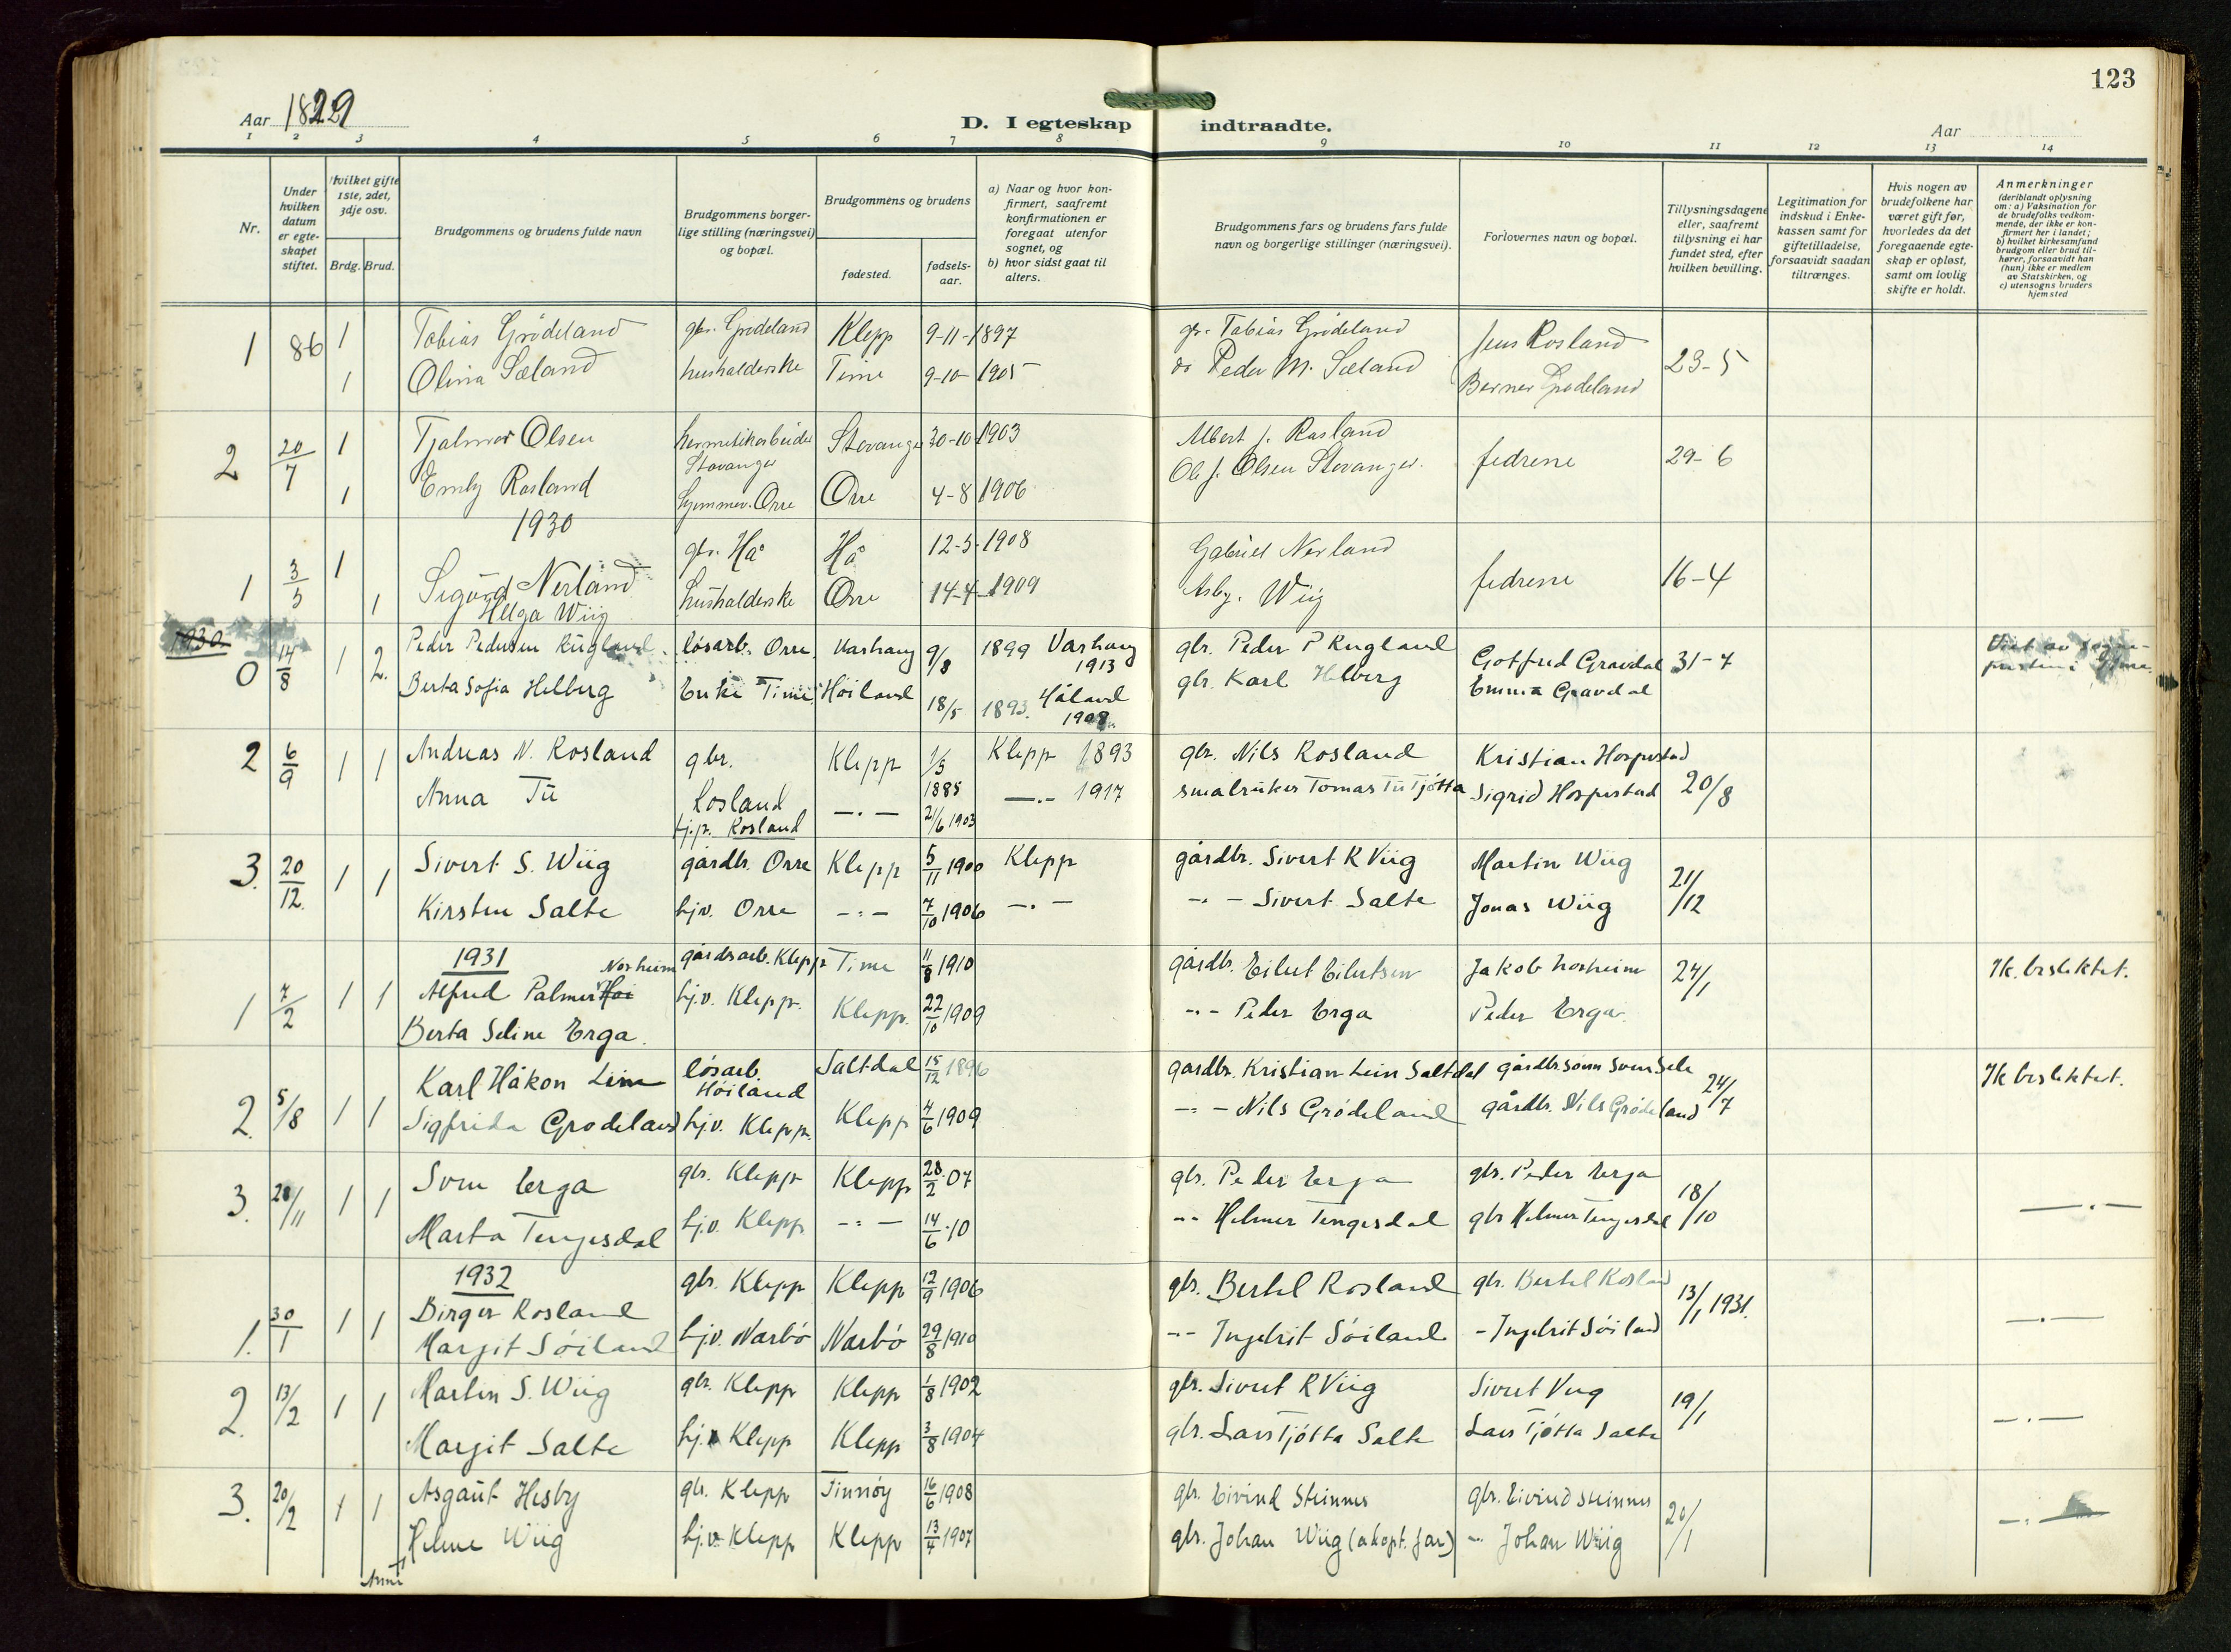 123
Aar 1829
D. I egteskap indtraadte.
Aar
1 2 3 4 5 6 7 8 9 10 11 12 13 14
Nr.
Under hvilken datum er egteskapet stiftet.
Hvilket gifte 1ste, 2det, 3dje osv.
Brdg. Brud.
Brudgommens og brudens fulde navn
Brudgommens borgerlige stilling (næringsvei) og bopæl.
Brudgommens og brudens
fødested.
fødselsaar.
a) Naar og hvor konfirmert, saafremt konfirmationen er foregaat utenfor sognet, og
b) hvor sidst gaat til alters.
Brudgommens fars og brudens fars fulde navn og borgerlige stillinger (næringsvei).
Forlovernes navn og bopæl.
Tillysningsdagene eller, saafremt tillysning ei har fundet sted, efter hvilken bevilling.
Legitimation for indskud i Enkekassen samt for giftetilladelse, forsaavidt saadan tiltrænges.
Hvis nogen av brudefolkene har været gift før, hvorledes da det foregaaende egteskap er opløst, samt om lovlig skifte er holdt.
Anmerkninger (deriblandt oplysning om: a) Vaksination for de brudefolks vedkommende, der ikke er konfirmert her i landet; b) hvilket kirkesamfund brudgom eller brud tilhører, forsaavidt han (hun) ikke er medlem av Statskirken, og c) utensogns bruders hjemsted
1 8-6 1 Tobias Grödeland gbr. Grödeland Klepp 9-11-1897 gbr. Tobias Grödeland Jens Rosland 23-5
1 Olina Sæland husholderske Time 9-10-1905 do Peder M. Sæland Berner Grödeland
2 20/7 1 Tjalmar Olsen hermetikarbeider Stavanger Stavanger 30-10 1903 Albert J. Rosland fedrene 29-6
1 Emly Rosland hjemmev. Orre Orre 4-8 1906 Ole J. Olsen Stavanger.
1930
1 3/5 1 Sigurd Nerland gbr. Hå Hå 12-5-1908 Gabriel Nerland fedrene 16-4
1 Helga Wiig husholderske Orre 14-4-1909 Asbj. Wiig
1930
0 14/8 1 2. Peder Pedersen Rugland. løsarb. Orre Varhaug 9/8 1899 Varhaug 1913 gbr. Peder P Rugland Gotfred Gravdal 31-7
Berta Sofia Helberg Enke Time Høiland 18/5 1893. Håland 1908. gbr. Karl Helberg Emma Gravdal
2 6/9 1 1 Andreas N. Rosland gbr. Rosland Klepp 1/5 1885 Klepp 1893 gbr. Nils Rosland Kristian Horpestad 20/8
Anna Tu hj.p. Rosland —.— 21/6 1903 —.— 1917 småbruker Tomas Tu Tjøtta Sigrid Horpestad
3. 20/12. 1 1 Sivert S. Wiig gårdbr. Orre Klepp 5/11 1900 Klepp gårdbr. Sivert R Viig Martin Wiig 21/12
Kirsten Salte hjv. Orre -:- 7/10 1906 —.— -:- Sivert Salte Jonas Wiig
1931
1 7/2 1 1 Alfred Palmer Hoi Norheim gårdsarb. Klepp Time 11/8 1910 gårdbr. Eilert Eilertsen Jakob Norheim 24/1 Ik. beslektet.
Berta Seline Erga. hj.v. Klepp. Klepp. 22/10 1909 -:- Peder Erga Peder Erga.
2. 5/8 1 1 Karl Håkon Lein løsarb. Høiland Saltdal 15/12 1896 gårdbr. Kristian Lein Saltdal gårdbr.sønn Sven Sele 24/7 Ik beslektet.
Sigfrida Grødeland hj.v. Klepp. Klepp 4/6 1909 -:- Nils Grødeland gårdbr. Nils Grødeland
3. 28/11 1 1 Sven Erga gbr. Klepp Klepp 28/2 07 gbr. Peder Erga gbr. Peder Erga 18/10 —.—
Marta Tengesdal hj.v. Klepp -:- 14/6 10 -:- Helmer Tengesdal gbr Helmer Tengesdal
1932
1. 30/1 1 1 Birger Rosland gbr. Klepp Klepp 12/9 1906 gbr. Bertel Rosland gbr. Bertel Rosland 13/1 1931. —.—
Margit Søiland hj.v. Nærbø Nærbø 29/8 1910 -:- Ingebrit Søiland - Ingebrit Søiland
2. 13/2 1 1 Martin S. Wiig gbr. Klepp Klepp 1/8 1902 gbr. Sivert R Viig Sivert Viig 19/1 —.—
Margit Salte hj.v Klepp Klepp 3/8 1904 gbr. Lars Tjøtta Salte Lars Tjøtta Salte
3. 20/2 1 1 Asgaut Hesby gbr. Klepp Finnøy 16/6 1908 gbr. Eivind Steinnes gbr. Eivind Steinnes 20/1 —.—
Helene Wiig hj.v. Klepp Klepp 13/4 1907 gbr. Johan Wiig (adopt. far) -:- Johan Wiig